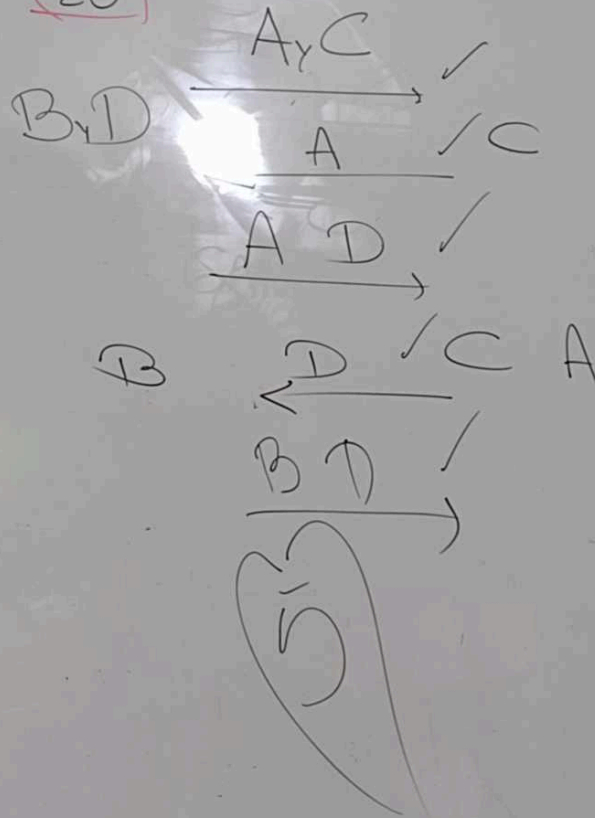 A y C ✓
B y D
A ✓ C
A D ✓
B D ✓ C A
B D ✓
5